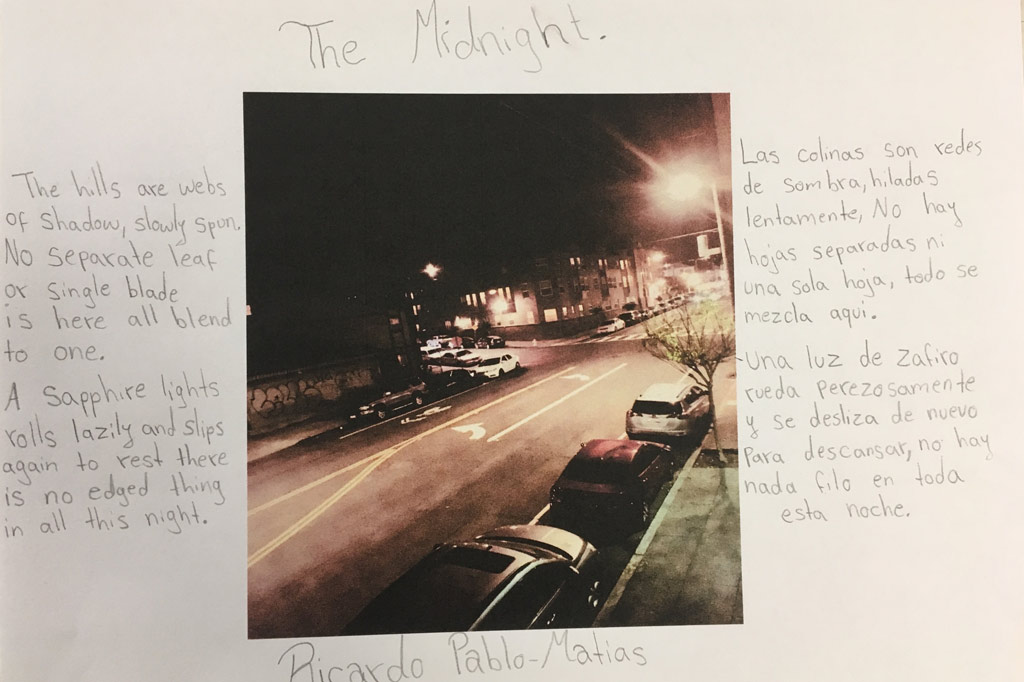 The Midnight.
The hills are webs
of shadow, slowly spun.
No separate leaf
or single blade
is here all blend
to one.
A Sapphire lights
rolls lazily and slips
again to rest there
is no edged thing
in all this night.
Las colinas son redes
de sombra, hiladas
lentamente, No hay
hojas separadas ni
una sola hoja, todo se
mezcla aqui.
-Una luz de zafiro
rueda perezosamente
y se desliza de nuevo
Para descansar, no hay
nada filo en toda
esta noche.
Ricardo Pablo-Matias